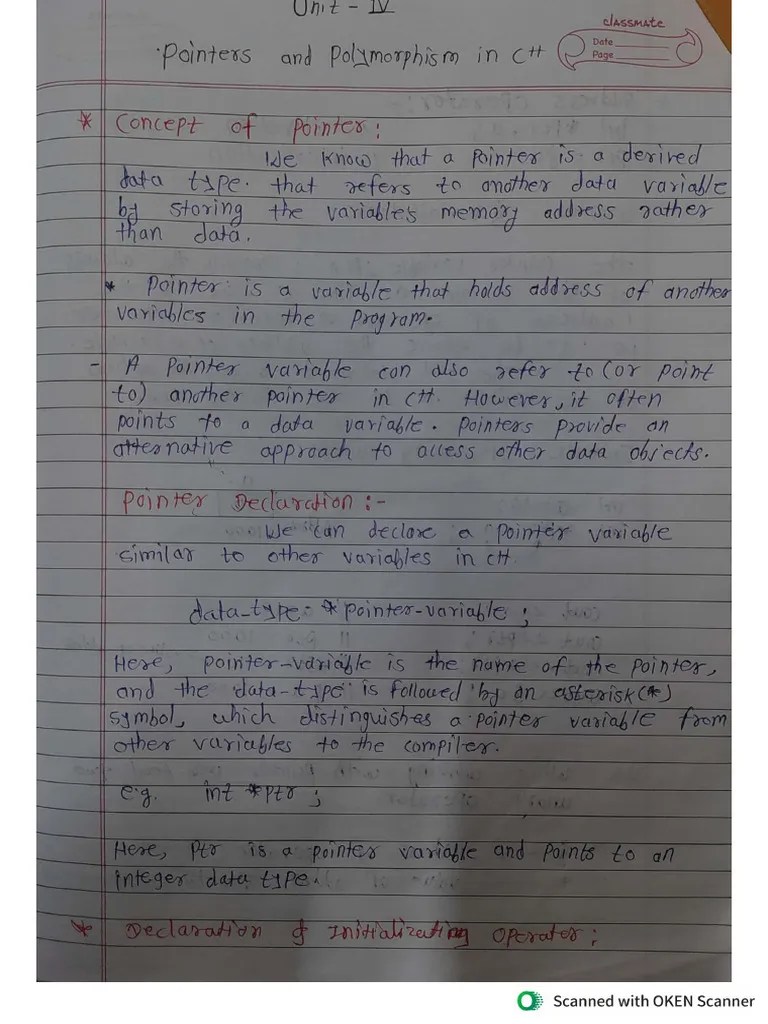 Unit - IV
classmate
Date
Page
Pointers and Polymorphism in C++
* Concept of Pointer:
We know that a pointer is a derived
data type. that refers to another data variable
by storing the variable's memory address rather
than data.
* Pointer is a variable that holds address of another
variables in the program.
- A pointer variable can also refer to (or point
to) another pointer in C++. However, it often
points to a data variable. Pointers provide an
alternative approach to access other data objects.
Pointer Declaration :-
We can declare a pointer variable
similar to other variables in C++
data-type *pointer-variable ;
Here, pointer-variable is the name of the pointer,
and the data-type is followed by an asterisk(*)
symbol, which distinguishes a pointer variable from
other variables to the compiler.
e.g. int *ptr ;
Here, ptr is a pointer variable and points to an
integer data type.
* Declaration & Initializating operator :
Scanned with OKEN Scanner